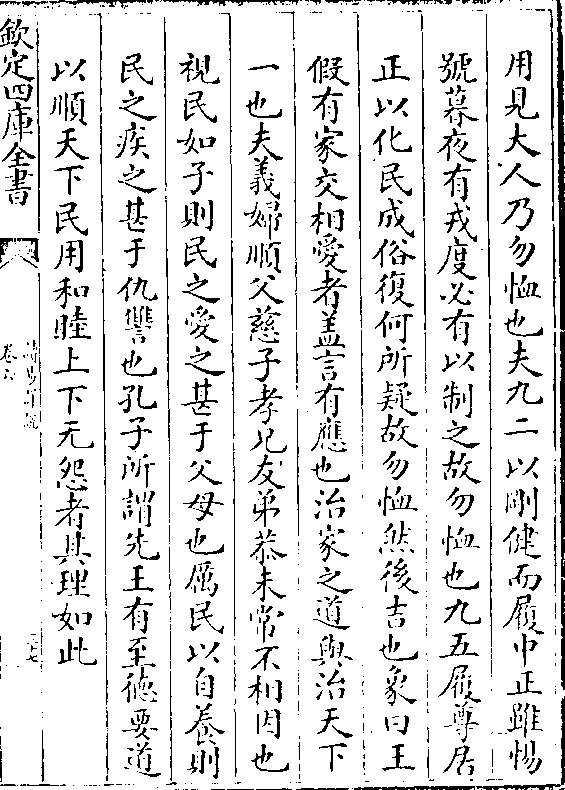 用見大人乃勿恤也夫九二以剛健而履中正雖惕
號暮夜有戎度必有以制之故勿恤也九五履尊居
正以化民成俗復何所疑故勿恤然後吉也象曰王
假有家交相愛者盖言有應也治家之道與治天下
一也夫義婦順父慈子孝兄友弟恭未常不相因也
視民如子則民之愛之甚于父母也厲民以自養則
民之疾之甚于仇讐也孔子所謂先王有至德要道
以順天下民用和睦上下无怨者其理如此
欽定四庫全書
卷六